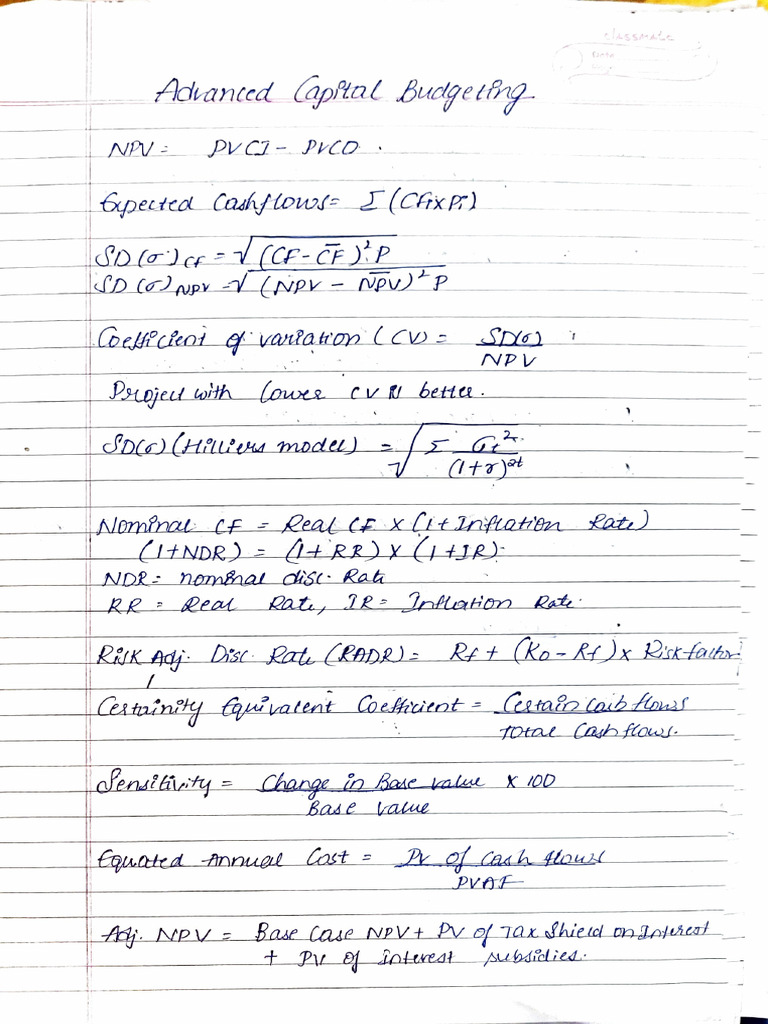 classmate
Date
Advanced Capital Budgeting
NPV = PVCI - PVCO.
Expected Cashflows = Σ (CFi x Pi)
SD(σ)CF = √(CF - C̅F̅)² P
SD(σ)NPV = √(NPV - N̅P̅V̅)² P
Coefficient of variation (CV) = SD(σ) / NPV
Project with lower CV is better.
SD(σ) (Hilliers model) = √ Σ σt² / (1+r)^2t
Nominal CF = Real CF x (1+Inflation Rate)
(1+NDR) = (1+RR) x (1+IR).
NDR = nominal disc. Rate
RR = Real Rate, IR = Inflation Rate.
Risk Adj. Disc. Rate (RADR) = Rf + (Ko - Rf) x Risk factor
Certainity Equivalent Coefficient = Certain Cash flows / Total Cash flows.
Sensitivity = Change in Base value / Base value x 100
Equated Annual Cost = PV of cash flows / PVAF
Adj. NPV = Base Case NPV + PV of Tax Shield on Interest
+ PV of interest subsidies.